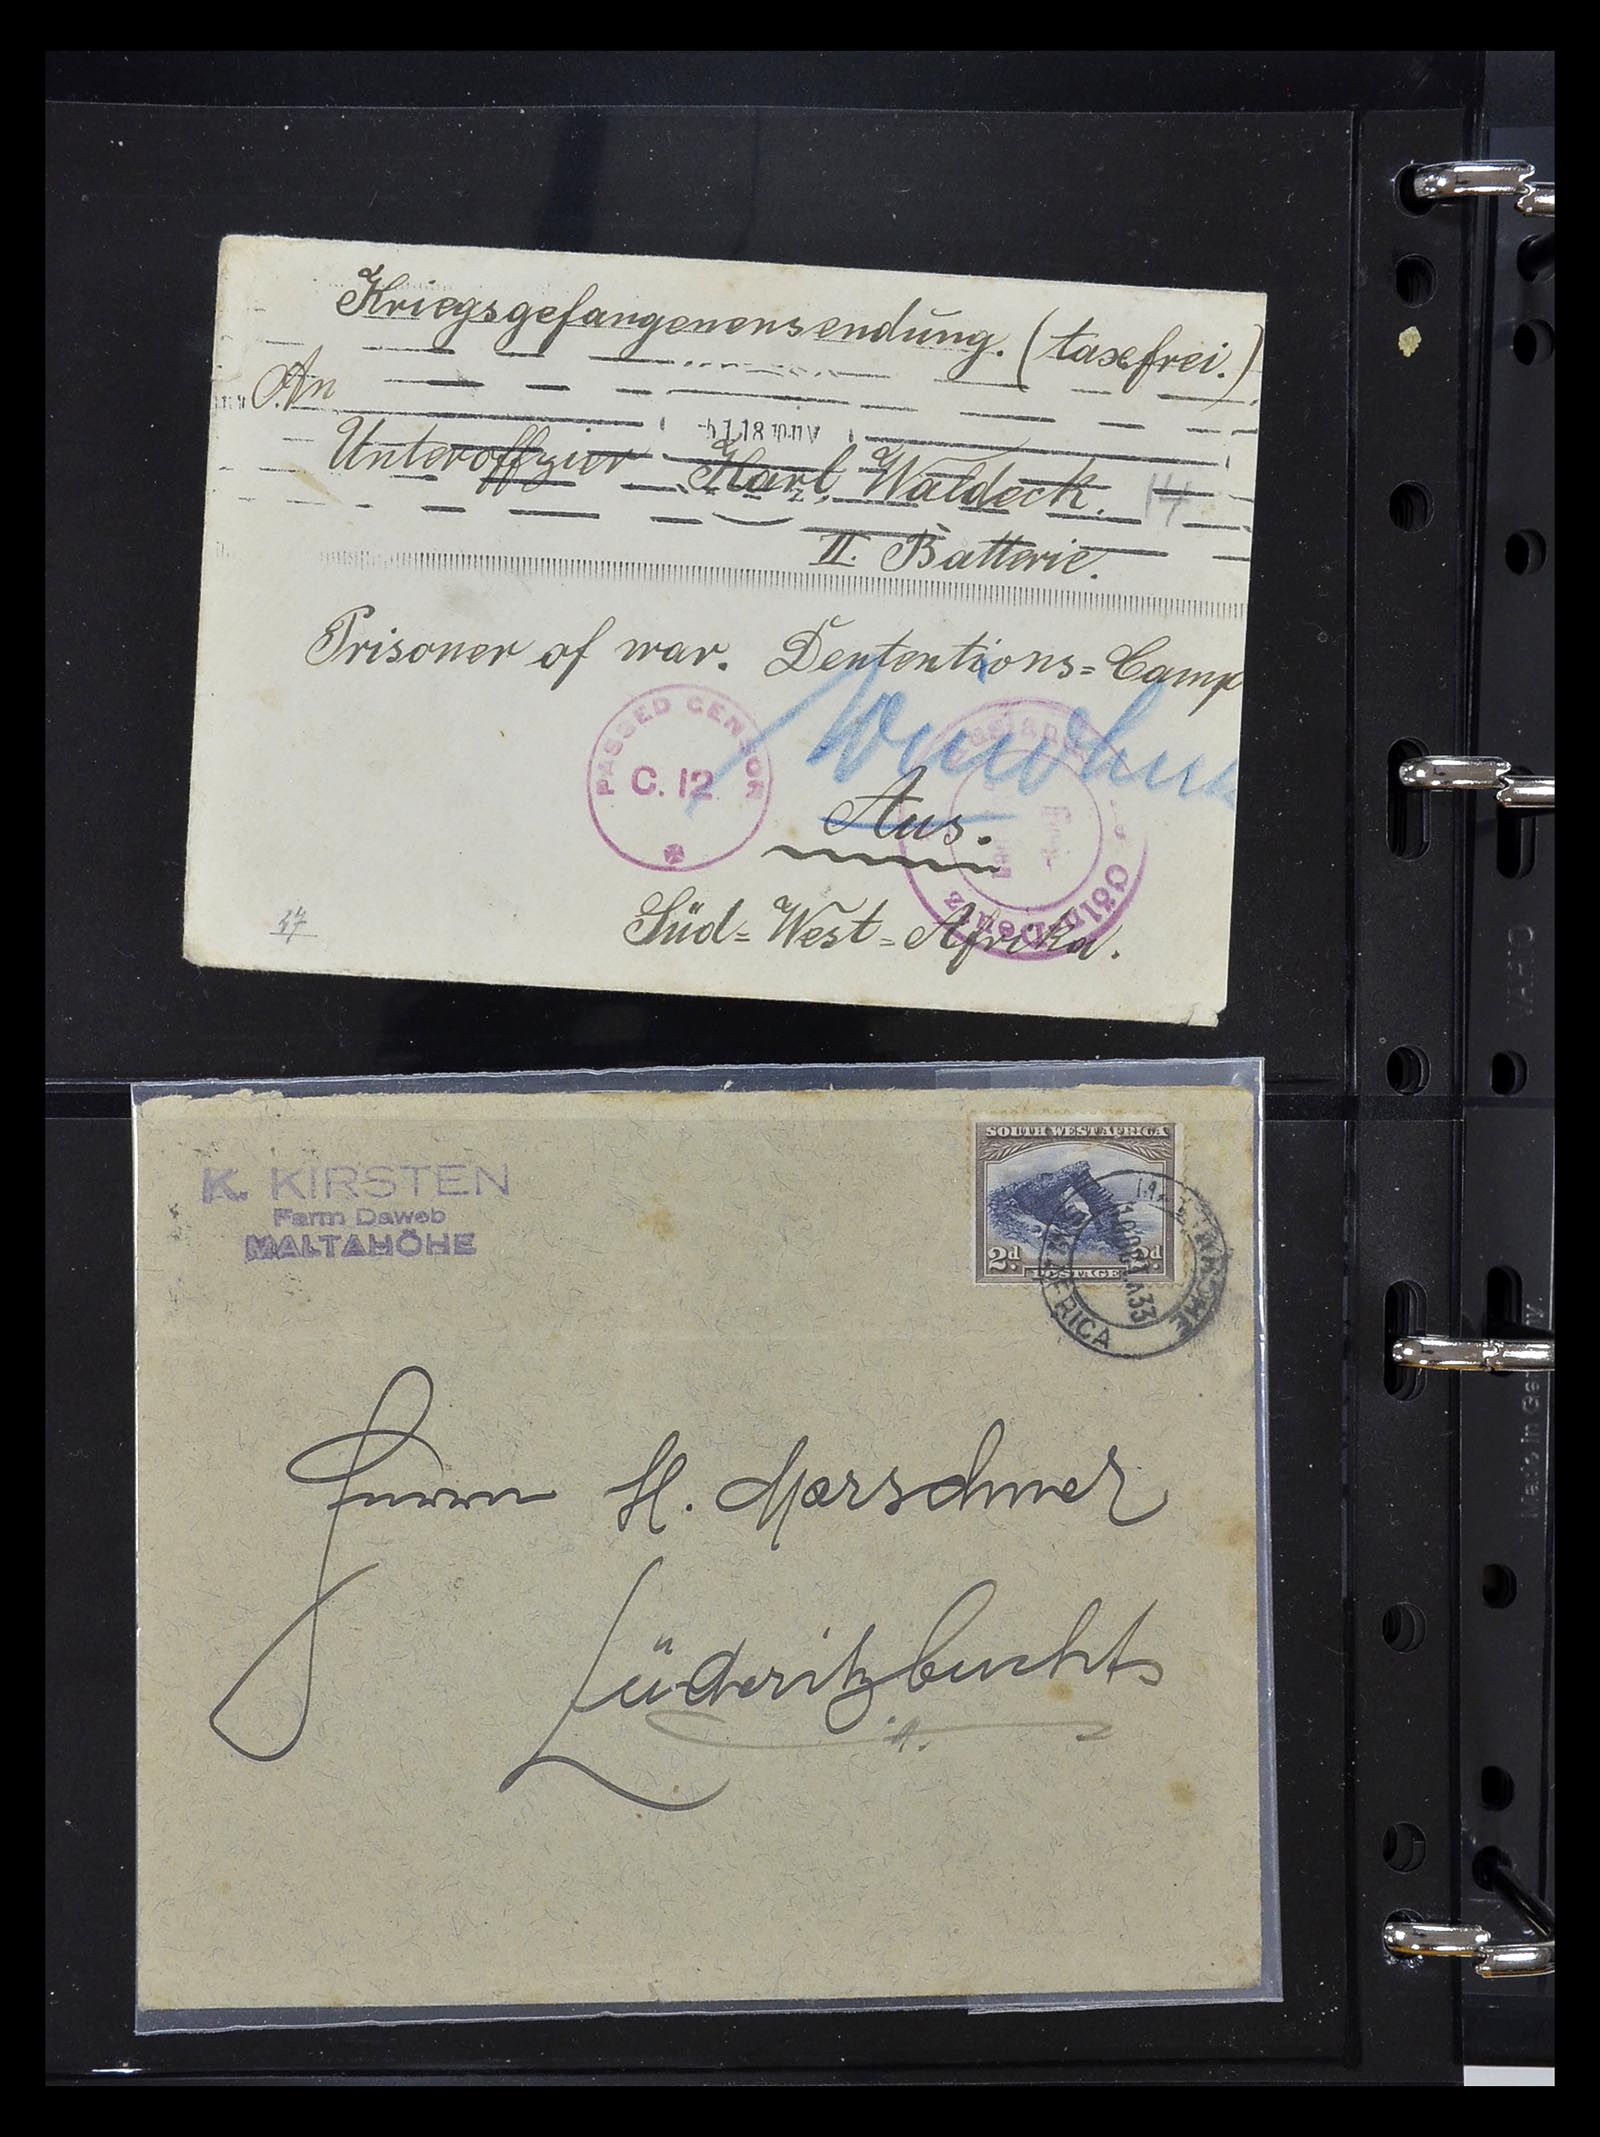 Kriegsgefangenensendung. (taxefrei.)
An
Unteroffzier Karl Waldeck. 14
II. Batterie.
Prisoner of war. Dententions=Camp
Windhuk
PASSED CENSOR
C. 12
Aus.
Cöln-Deutz
Süd=West=Afrika.
27
K. KIRSTEN
Farm Daweb
MALTAHÖHE
SOUTH WEST AFRICA
2d 2d
POSTAGE
MALTAHÖHE
33
AFRICA
Herrn H. Marschner
Lüderitzbucht
VARIO
Made in Germany